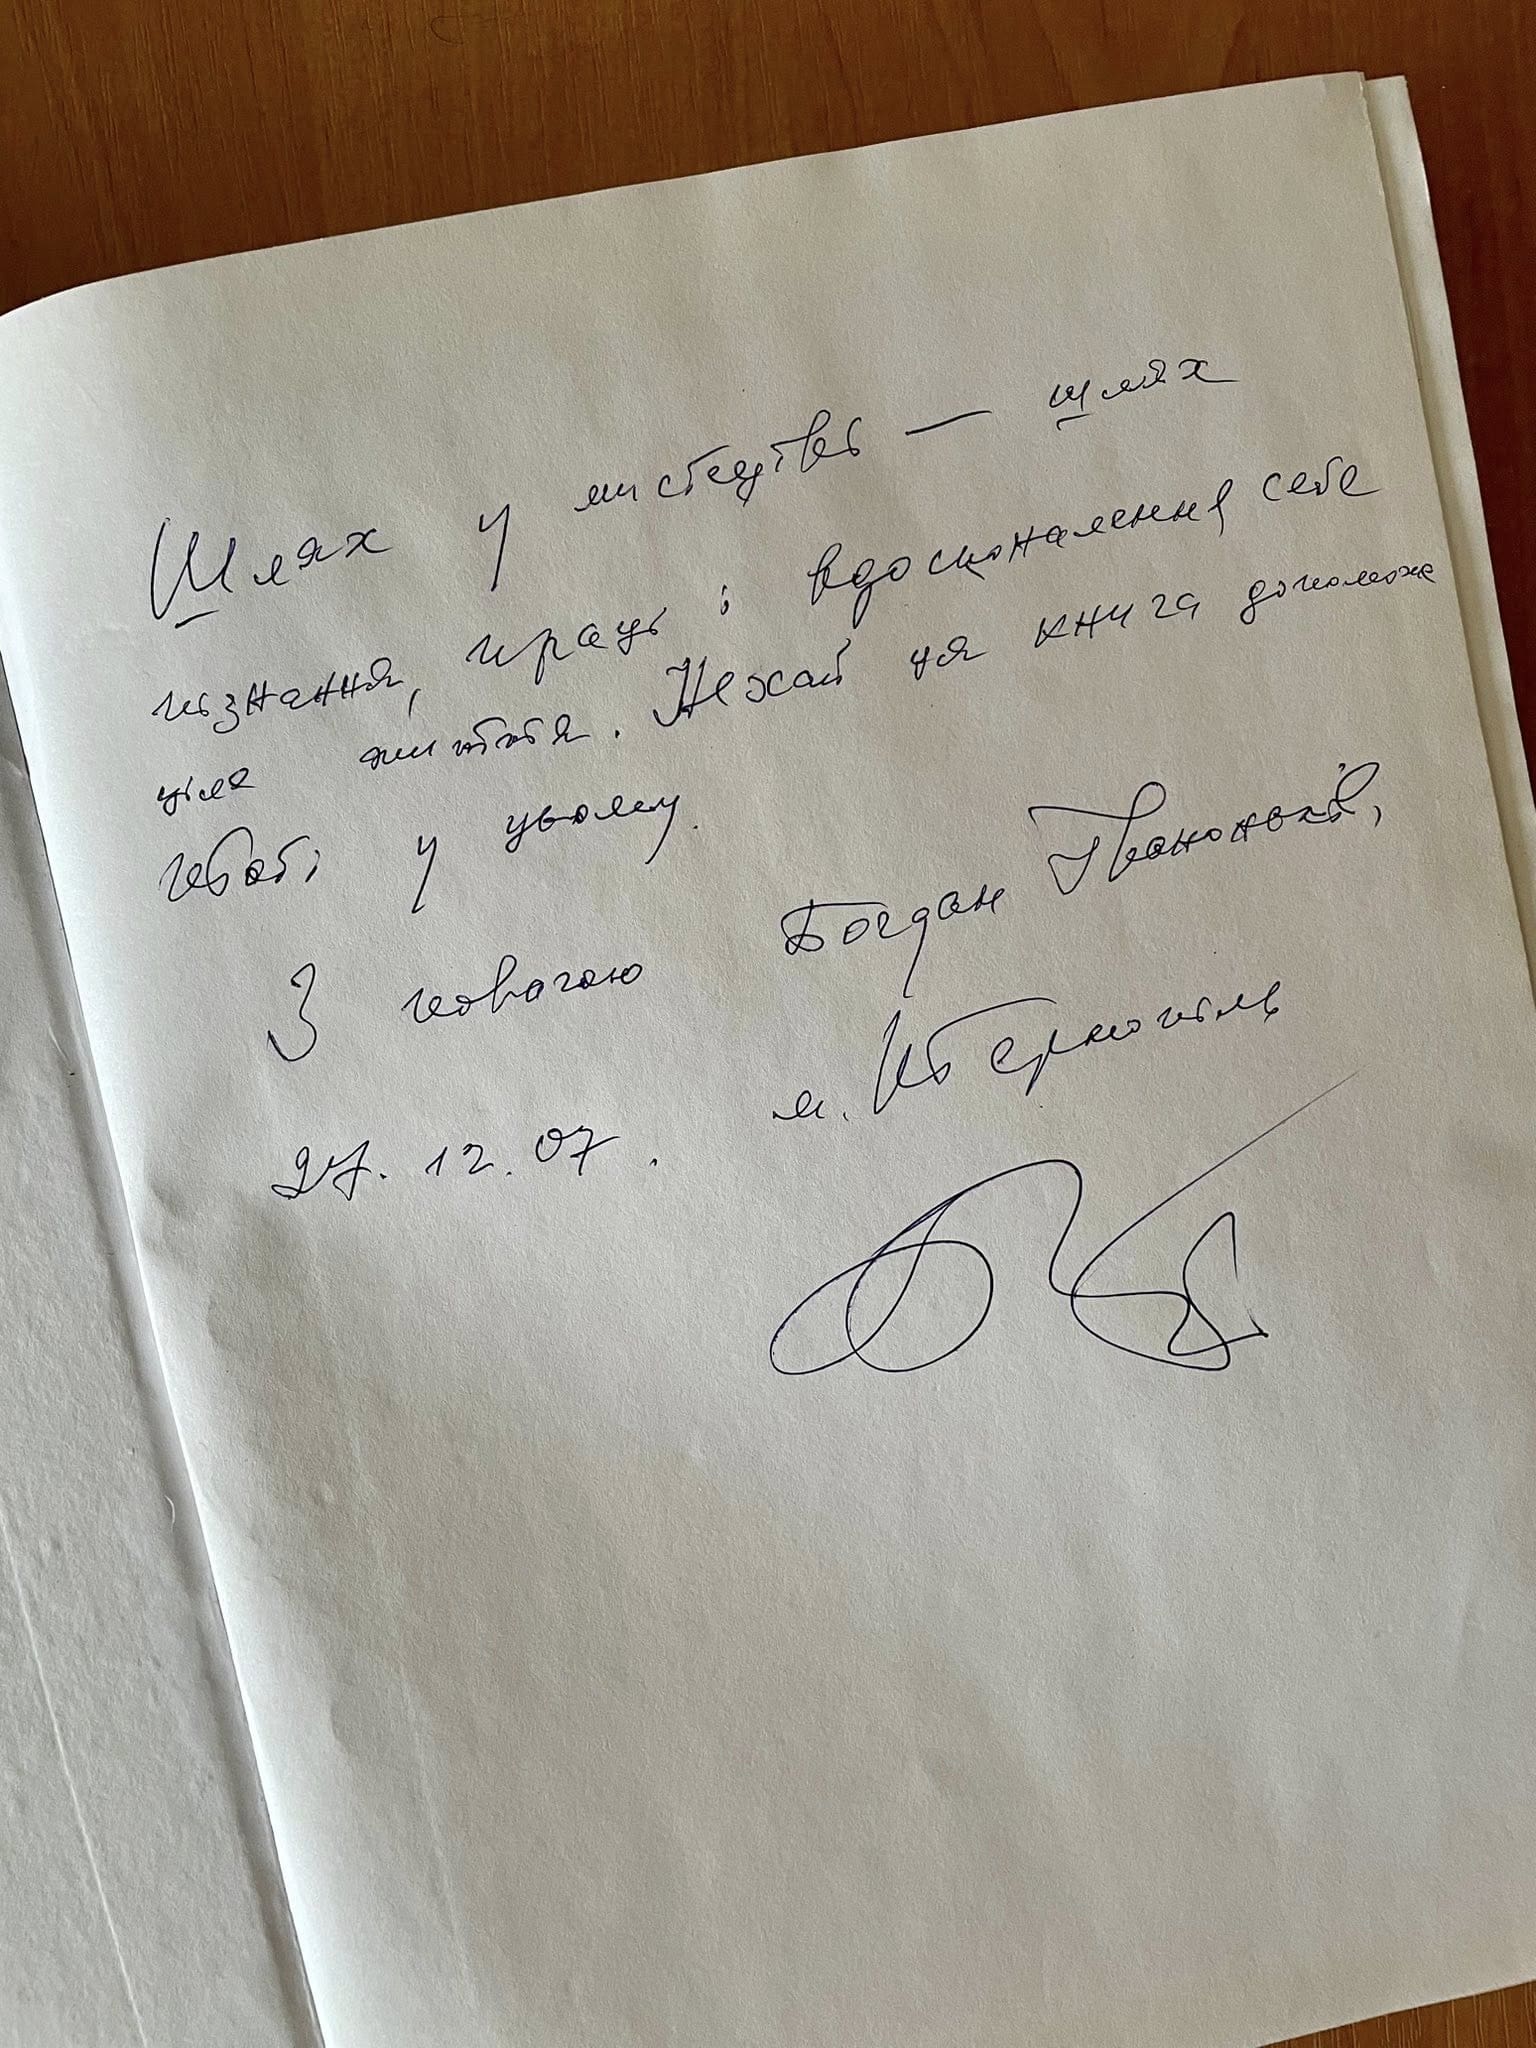 Шлях у мистецтві — шлях
пізнання, праці і вдосконалення себе
ціле життя. Нехай ця книга допоможе
тобі у цьому.
З повагою Богдан Іваноньків,
м. Тернопіль
27.12.07.